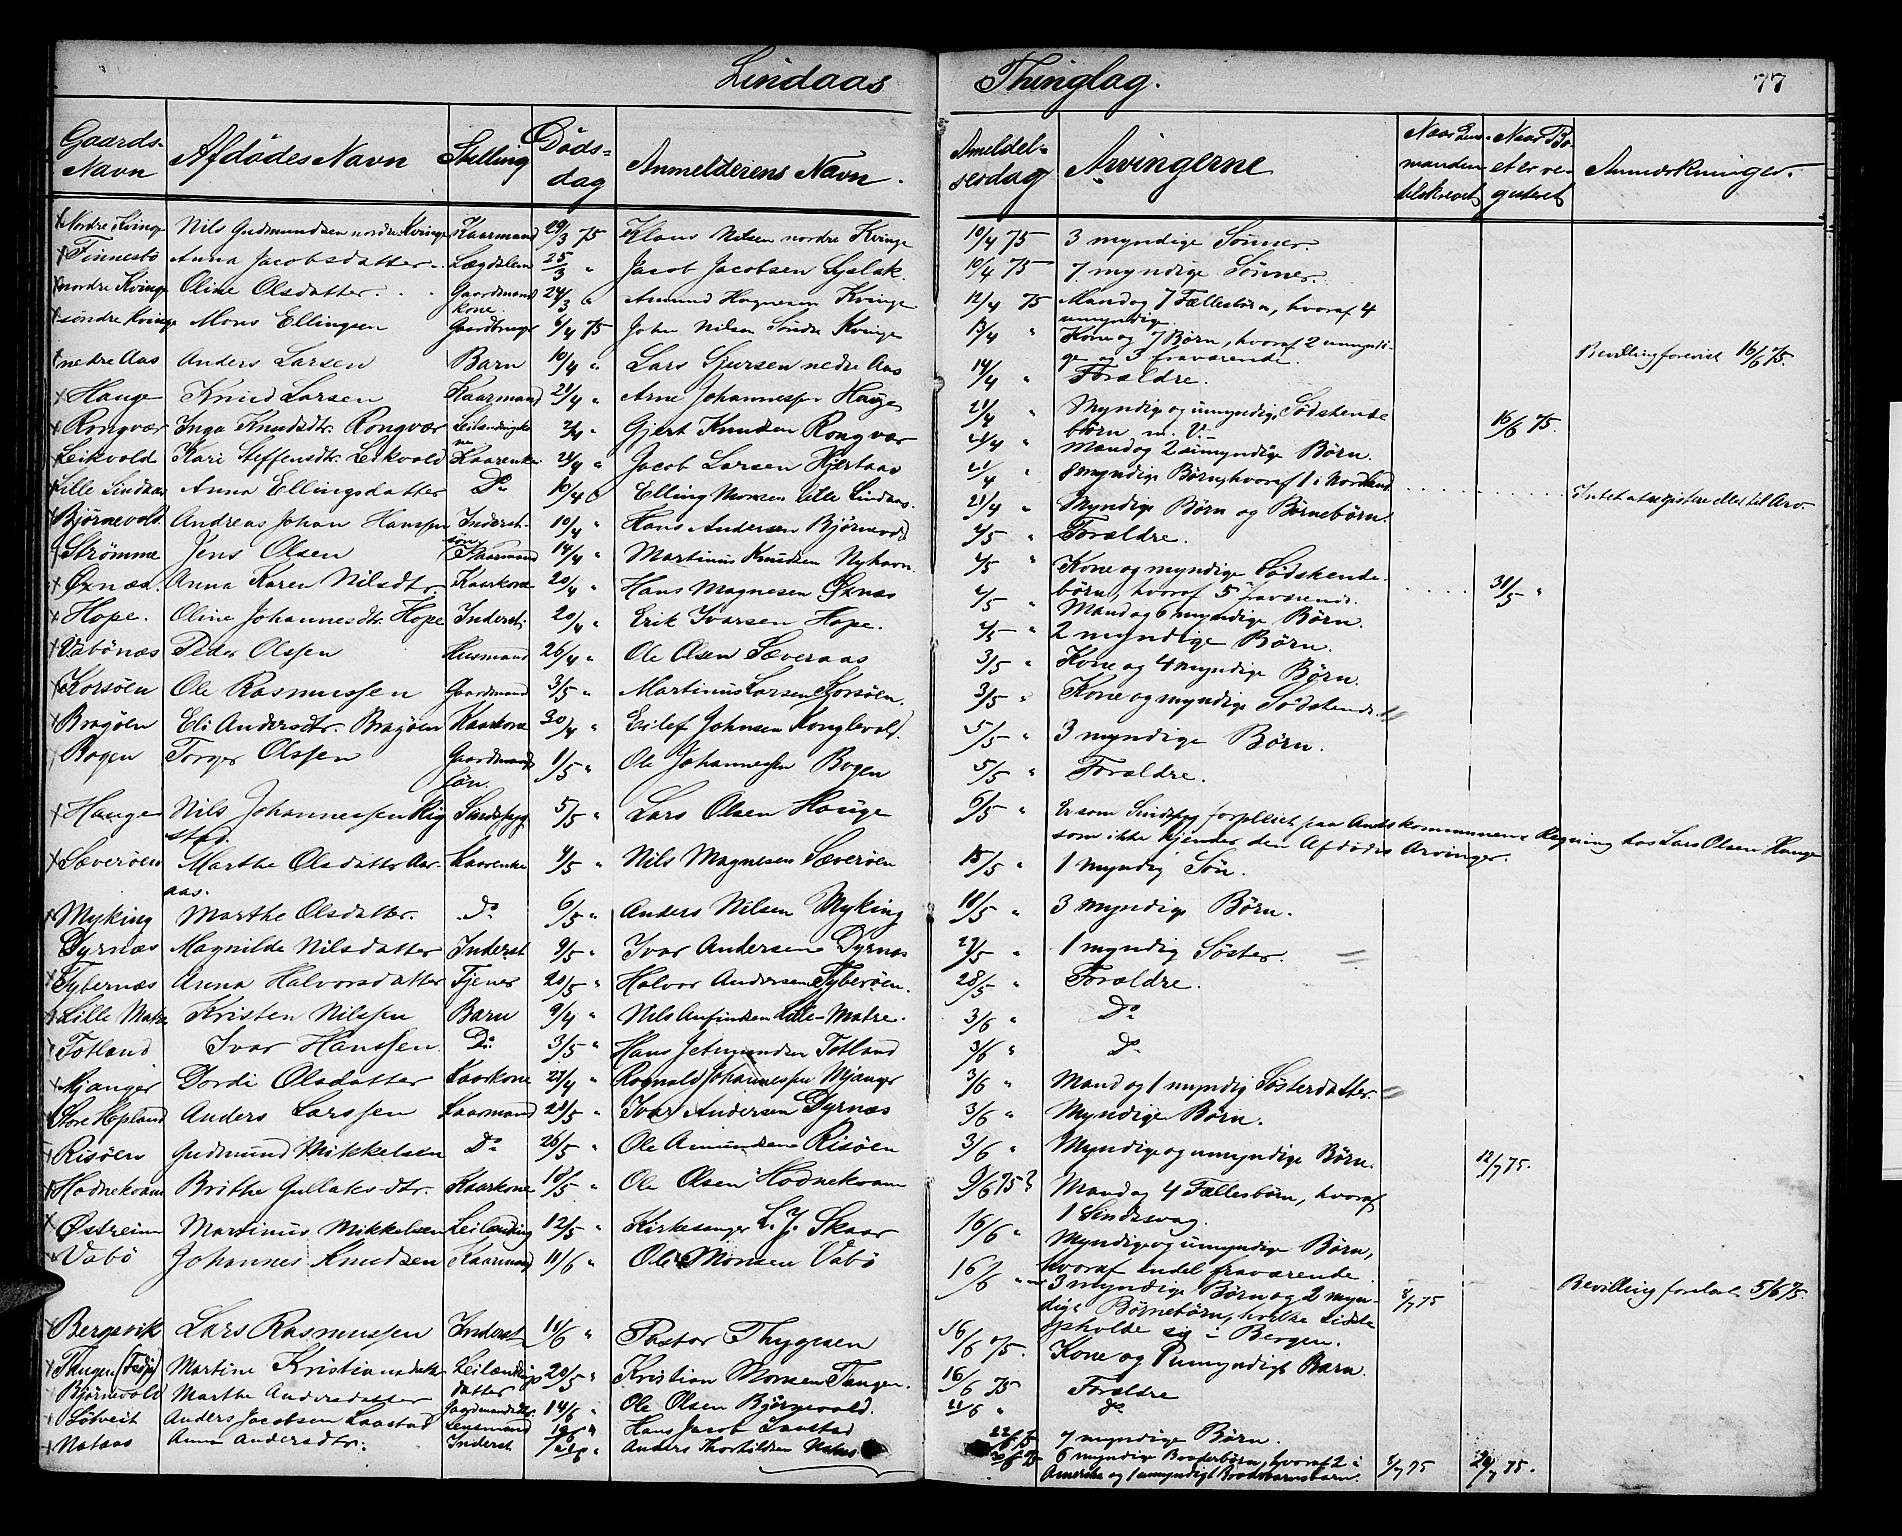 Lindaas Thinglag. 77
Gaards-Navn Afdødes Navn Stilling Døds-dag Anmelderens Navn. Ameldel-sesdag Arvingerne Anmærkninger.
Nordre Kvinge Nils Gudmundsen nordre Kvinge Kaarmand 29/3 75 Klaus Nilsen nordre Kvinge 10/4 75 3 myndige Sønner.
Finnesbø Anna Jacobsdatter Lægdslem 25/3 " Jacob Jacobsen 10/4 75 7 myndige Sønner.
nordre Kvinge Oline Olsdatter Gaardmand kone. 24/3 " Amund Kvinge 12/4 75 Mand og 7 Fællesbørn, hvoraf 4 umyndige.
søndre Kvinge Mons Ellingsen Gaardbruger 9/4 75 John Nilsen Søndre Kvinge 13/4 " Kone og 7 Børn, hvoraf 2 umyndi-
ge og 3 fraværende.
nedre Aas Anders Larsen Barn 10/4 " Lars Sjursen nedre Aas 14/4 " Forældre. Bevilling forevist 16/6 75.
Hauge Knud Larsen Kaarmand 21/4 " Arne Johannessen Hauge 21/4 " Myndige og umyndige Sødskende
børn m. V. 16/6 75.
Rongvær Inga Knudsdtr. Rongvær 2/4 " Gjert Knudsen Rongvær 21/4 " Mand og 2 umyndige Børn.
Leikvold Kari Steffensdtr. Leikvold Kaarenke 21/4 " Jacob Larsen Hjertaas 21/4 " 8 myndige Børn, hvoraf 1 i Nordland
Lille Lindaas Anna Ellingsdatter Do 10/4 " Elling Monsen lille Lindaas. 21/4 " Myndige Børn og Børnebørn.
Bjørnevold. Andreas Johan Hanssen Inderst-søn 10/4 " Hans Andersen Bjørnevold 4/5 " Forældre.
Strømme Jens Olsen Kaarmand 14/4 " Martinus Knudsen Nyhavn. 4/5 " Kone og myndige Sødskende-
børn, hvoraf 5 fraværende. 31/5 "
Øxnæs. Anna Karen Nilsdtr. Kaarkone 20/4 " Hans Magnesen Øxnæs 4/5 " Mand og 6 myndige Børn.
Hope. Oline Johannesdtr. Hope Inderst. 20/4 " Erik Ivarsen Hope. 4/5 " 2 myndige Børn.
Vabønæs Peder Olssen Husmand 26/4 " Ole Olsen Sæveraas 3/5 " Kone og 4 myndige Børn.
Korsøen Ole Rasmussen Gaardmand 3/5 " Martinus Larsen Korsøen. 3/5 " Kone og myndige Sødskende.
Bragøen Eli Andersdtr. Bragøen Kaarkone 30/4 " Eilef Johnsen Konglevold. 5/5 " 3 myndige Børn.
Bogen Torger Olssen Gaardmands Søn. 1/5 " Ole Johannessen Bogen 5/5 " Forældre.
Hauge Nils Johannessen Rig-
stad. Sindssyg 5/5 " Lars Olsen Hauge 6/5 " Er som Sindssyg forpleiet paa Amtskommunens Regning hos Lars Olsen Hauge
som ikke kjender den Afdødes Arvinger.
Sæverøen Marthe Olsdatter Aar-
aas. Kaarenke 4/5 " Nils Magnesen Sæverøen 15/5 " 1 myndig Søn.
Myking Marthe Olsdatter. Do 6/5 " Anders Nilsen Myking 18/5 " 3 myndige Børn.
Dyrnæs Magnilde Nilsdatter Inderst 9/5 " Ivar Andersen Dyrnæs 27/5 " 1 myndig Søster.
Fybernæs Anna Halvorsdatter Tjener 20/5 " Halvor Andersen Fyberøen. 28/5 " Forældre.
Lille Matre Kristen Nilssen Barn 9/4 " Nils Anfindsen Lille-Matre. 3/6 " Do
Totland Ivar Hanssen. Do 3/5 " Hans Jetmundsen Totland 3/6 " Do
Mjanger Dordi Olsdatter Kaarkone 27/4 " Rognald Johannessen Mjanger 3/6 " Mand og 1 myndig Søsterdatter.
Store Hopland Anders Larssen Kaarmand 21/5 " Ivar Andersen Dyrnæs 3/6 " Myndige Børn.
Risøen Gudmund Mikkelsen Do 26/5 " Ole Amundsen Risøen 3/6 " Myndige og umyndige Børn. 12/7 75.
Hodnekvam Brithe Gullaksdtr. Kaarkone 18/5 " Ole Olsen Hodnekvam 9/6 75? Mand og 4 Fællesbørn, hvoraf
1 Sindssvag.
Østreim Martinus Mikkelsen Leilænding 12/5 " Kirkesanger L. J. Skaar 16/6 " Myndige og umyndige Børn,
hvoraf endel fraværende.
Vabø Johannes Knudsen Kaarmand 11/6 " Ole Monsen Vabø 16/6 " 3 myndige Børn og 2 myn-
dige Børnebørn, hvilke sidste
opholde sig i Bergen. 8/7 75 Bevilling forelæst 5/6 75.
Bergsvik Lars Rasmussen Inderst 11/6 " Pastor Thygesen 16/6 75. Kone og 1 umyndigt Barn.
Tangen Martine Kristiansdatter Leilændings datter 20/5 " Kristian Monsen Tangen. 16/6 75 Forældre
Bjørnevold Marthe Andersdatter 14/6 " Ole Olsen Bjørnevold. 21/6 " do
Søtveit Anders Jacobsen Laastad Lensmand Hans Jacob Laastad 7 myndige Børn.
Nataas Anna Andersdtr. Inderst Anders Nataas 6 myndige Broderbørn, hvoraf 2 i
Amerika og 1 umyndigt Broderbarnsbarn. 8/7 75 24/7 75.